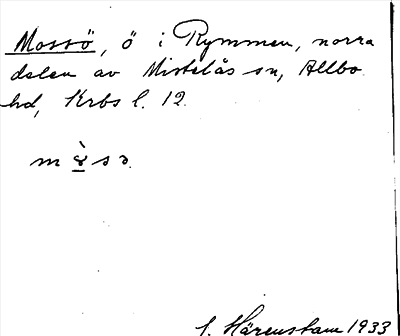 Mossö, ö i Rymmen, norra
delen av Mistelås sn, Allbo
hd, Krbs l. 12.
S. Härenstam 1933